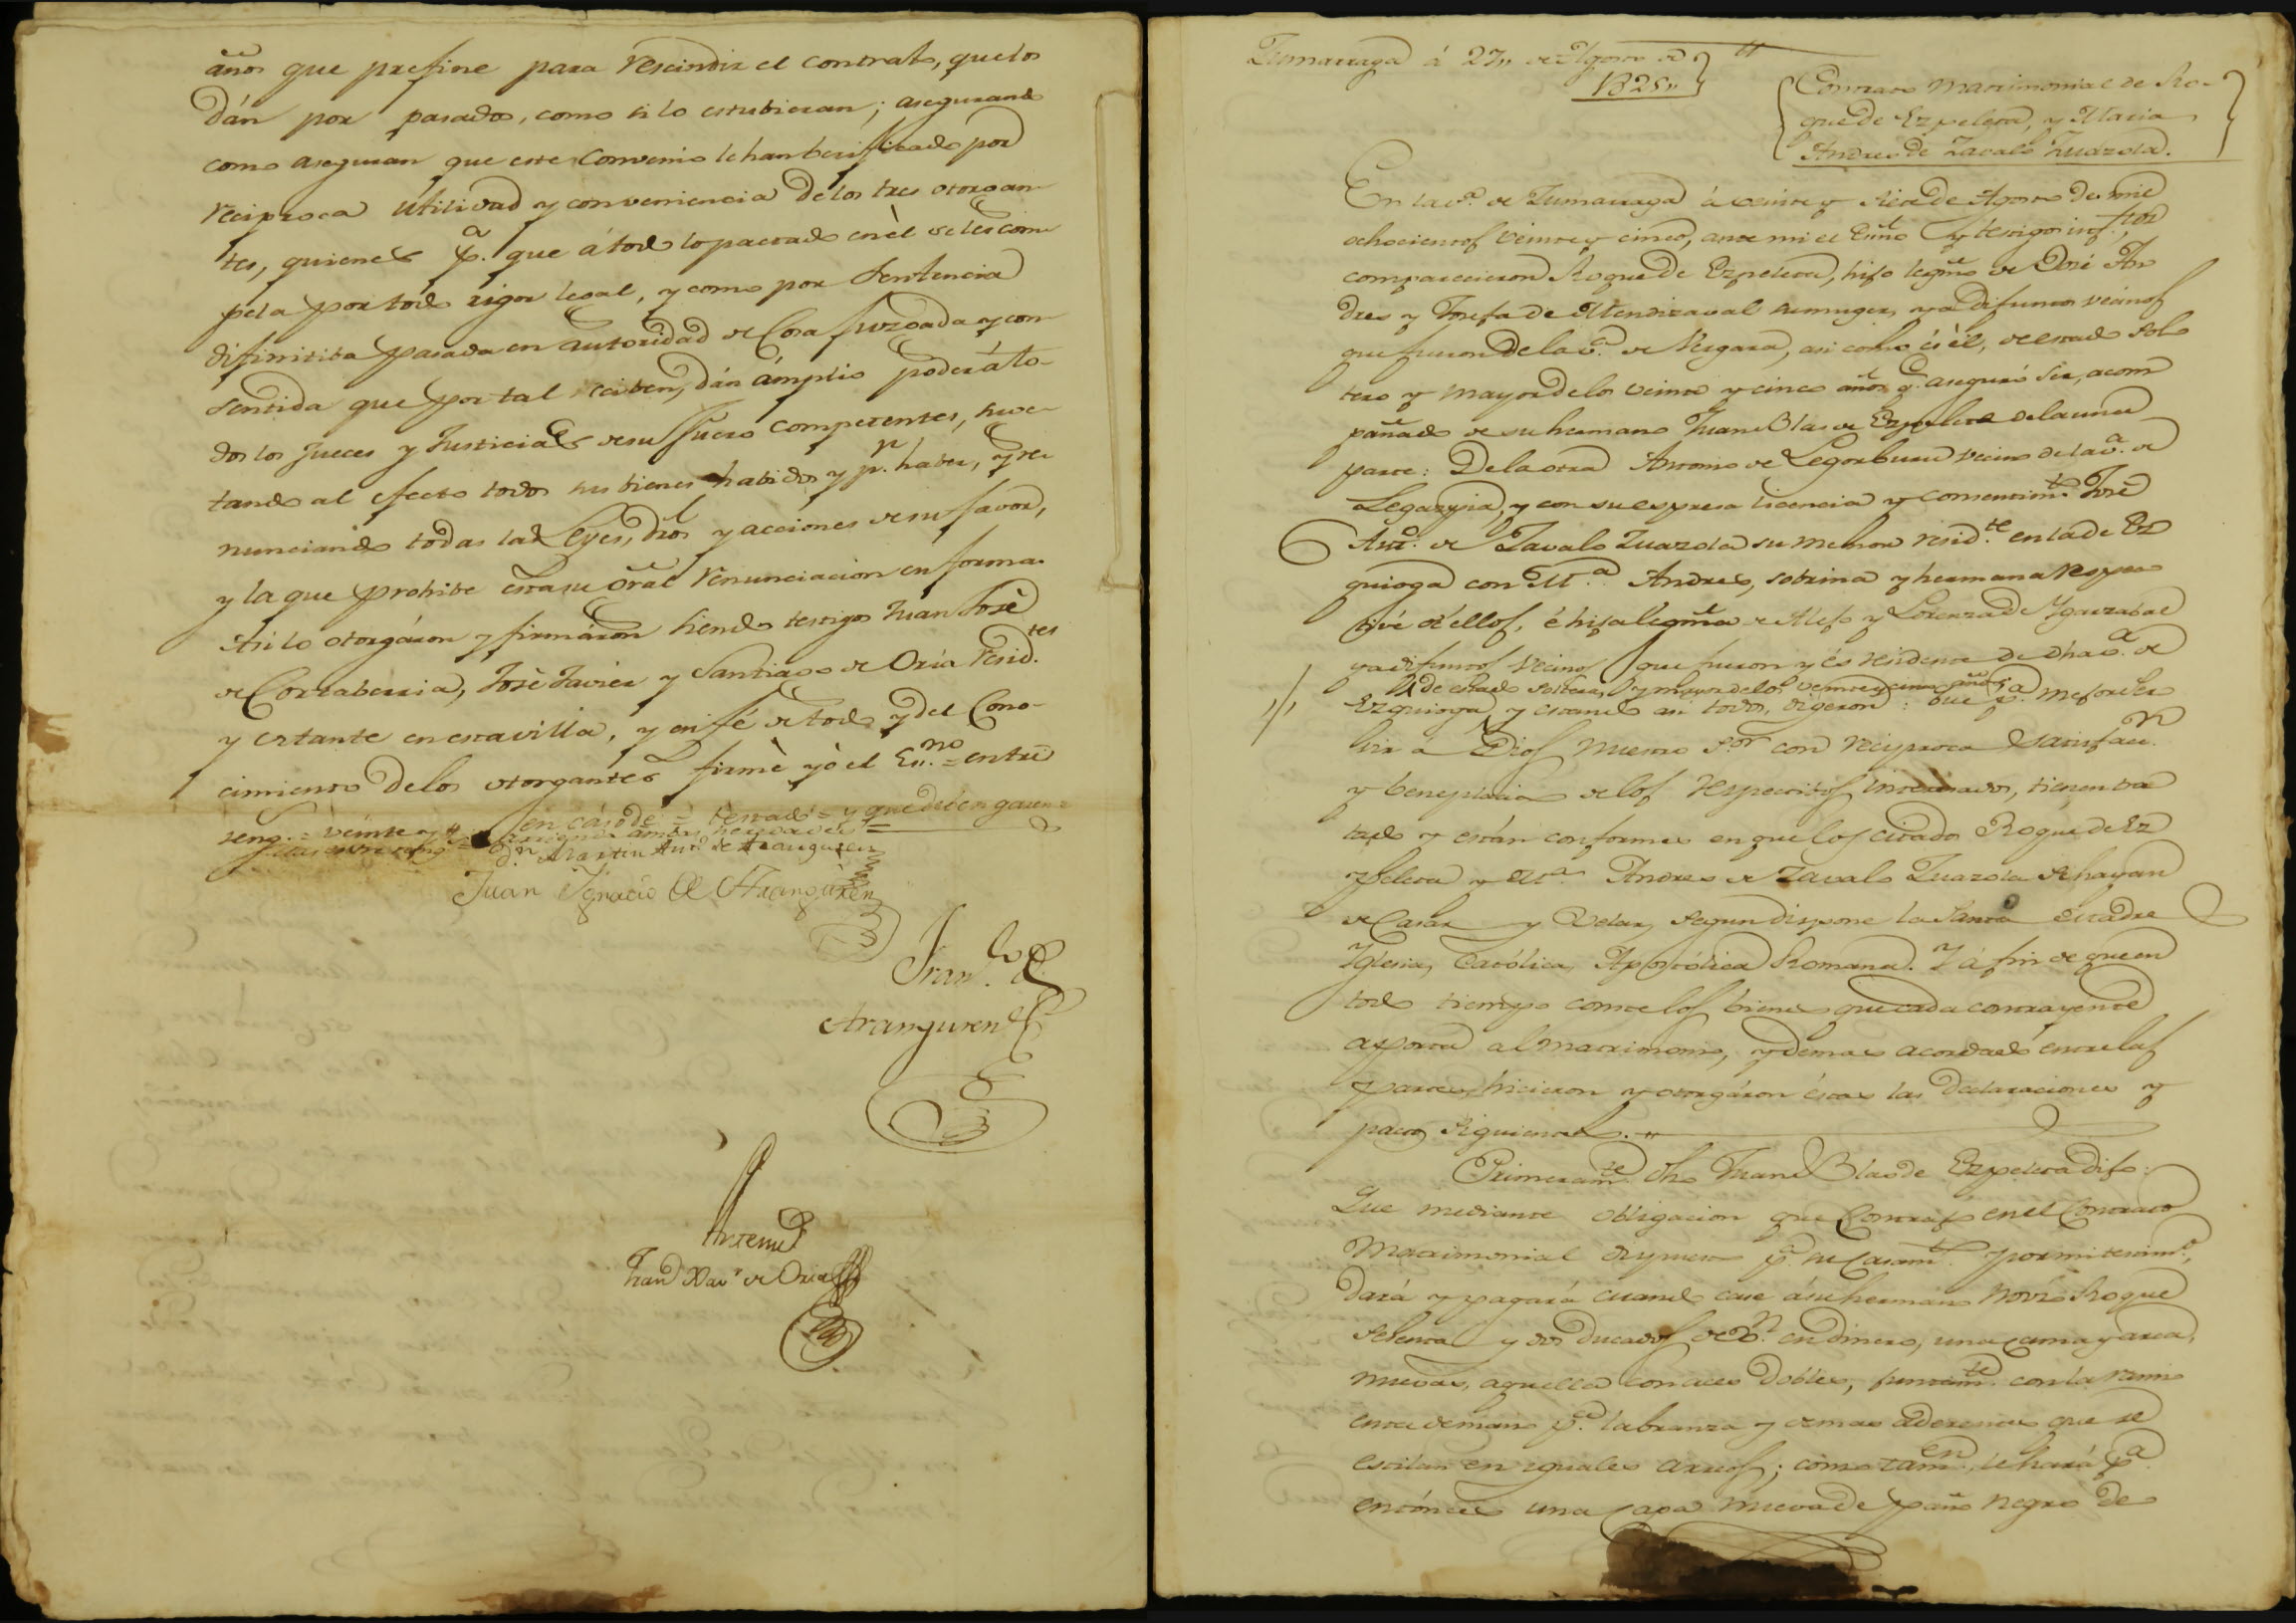 años que prefine para rescindir el contrato, que los
dán por pasados, como si lo estubieran; asegurando
como aseguran que este Convenio le han berificado por
reciproca utilidad y conveniencia de los tres otorgan-
tes, quienes pª. que á todo lo pactado en èl se les com-
pela por todo rigor legal, y como por Sentencia
difinitiba pasada en autoridad de Cosa juzgada y con-
sentida que por tal reciben, dán ámplio poder á to-
dos los Jueces y Justicias de su fuero competentes, suge-
tando al efecto todos sus bienes habidos y pr. haber, y re-
nunciando todas las Leyes, dros y acciones de su favor,
y la que prohibe esta su gral renunciacion en forma.
Asi lo otorgáron y firmáron siendo testigos Juan José
de Cortaberria, José Javier y Santiago de Oria resid.tes
y estante en esta villa, y en fé de todo y del Cono-
cimiento de los otorgantes firmè yò el Es.no = entre
reng.s = veinte y en cáso de = testado = y que deben garan=
ambas heredades =
Dn. Martin Antº de Aranguren
Juan Ygnacio de Aranguren
Fran.co de
Aranguren
Antemi
Juan Xavr de Oria
Zumarraga á 27,, de Agosto de
1825,,
Contrato Matrimonial de Ro-
que de Ezpeleta, y Maria
Andres de Zavalo Zuazola.
En la vª. de Zumarraga á veinte y siete de Agosto de mil
ochocientos veinte y cinco, ante mi el Esno y testigos infros
comparecieron Roque de Ezpeleta, hijo legmo de José An-
dres y Josefa de Mendizaval su muger, ya difuntos vecinos
que fueron de la vª. de Vergara, asi como és èl, de estado Sol-
tero y mayor de los veinte y cinco años qe. aseguró ser, acom-
pañado de su hermano Juan Blas de Ezpeleta de la una
parte: De la otra Antonio de Legorburu vecino de la vª. de
Legazpia, y con su espresa licencia y consentimto. José
Antº. de Zavalo Zuazola su menor resid.te en la de Ez-
quioga con M.ª Andres, sobrina y hermana respec-
tivé de ellos, é hija legma de Alejo y Lorenza de Ygarzabal
ya difuntos vecinos que fueron y és residenta de dha vª. de
de estado soltera, y mayor de los veinte y cinco años
Ezquioga, y estando asi todos, digeron: Que pª. mejor Ser-
vir a Dios nuestro Sor con reciproca satisfacn.
y beneplacito de los respectibos interesados, tienen tra-
tado y están conformes en que los citados Roque de Ez-
peleta y Mª. Andres de Zavalo Zuazola se hayan
de Casar y Velar, segun dispone la Santa Madre
Yglesia, Católica, Apostólica Romana. Y á fin de que en
todo tiempo conste los bienes que cada contrayente
aporta al Matrimonio, y demas acordado entre las
partes, hicieron y otorgáron éstas las declaraciones y
pactos siguientes.
Primeramte. dho Juan Blas de Ezpeleta dijo:
Que mediante obligacion que Contrajo en el Contrato
Matrimonial dispuesto pª. su Casamto. y por mi testimº.,
dará y pagará cuando case á su hermano novio Roque
setenta y dos ducados de vn. en dinero, una cama y arca,
nuevas, aquella con aces dobles, juntamte. con la rami-
enta de mano pª. labranza y demas aderentes que se
estilan en iguales arreos; como tamen. le hará pª.
entónces una capa nueva de paño negro de